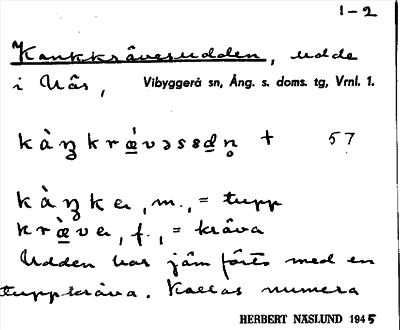 1-2
Kankkråvesudden, udde
i Uås, Vibyggerå sn, Ång. s. doms. tg, Vrnl. 1.
+ 57
m., = tupp
f., = kråva
Udden har jämförts med en
tuppkråva. Kallas numera
HERBERT NÄSLUND 1945